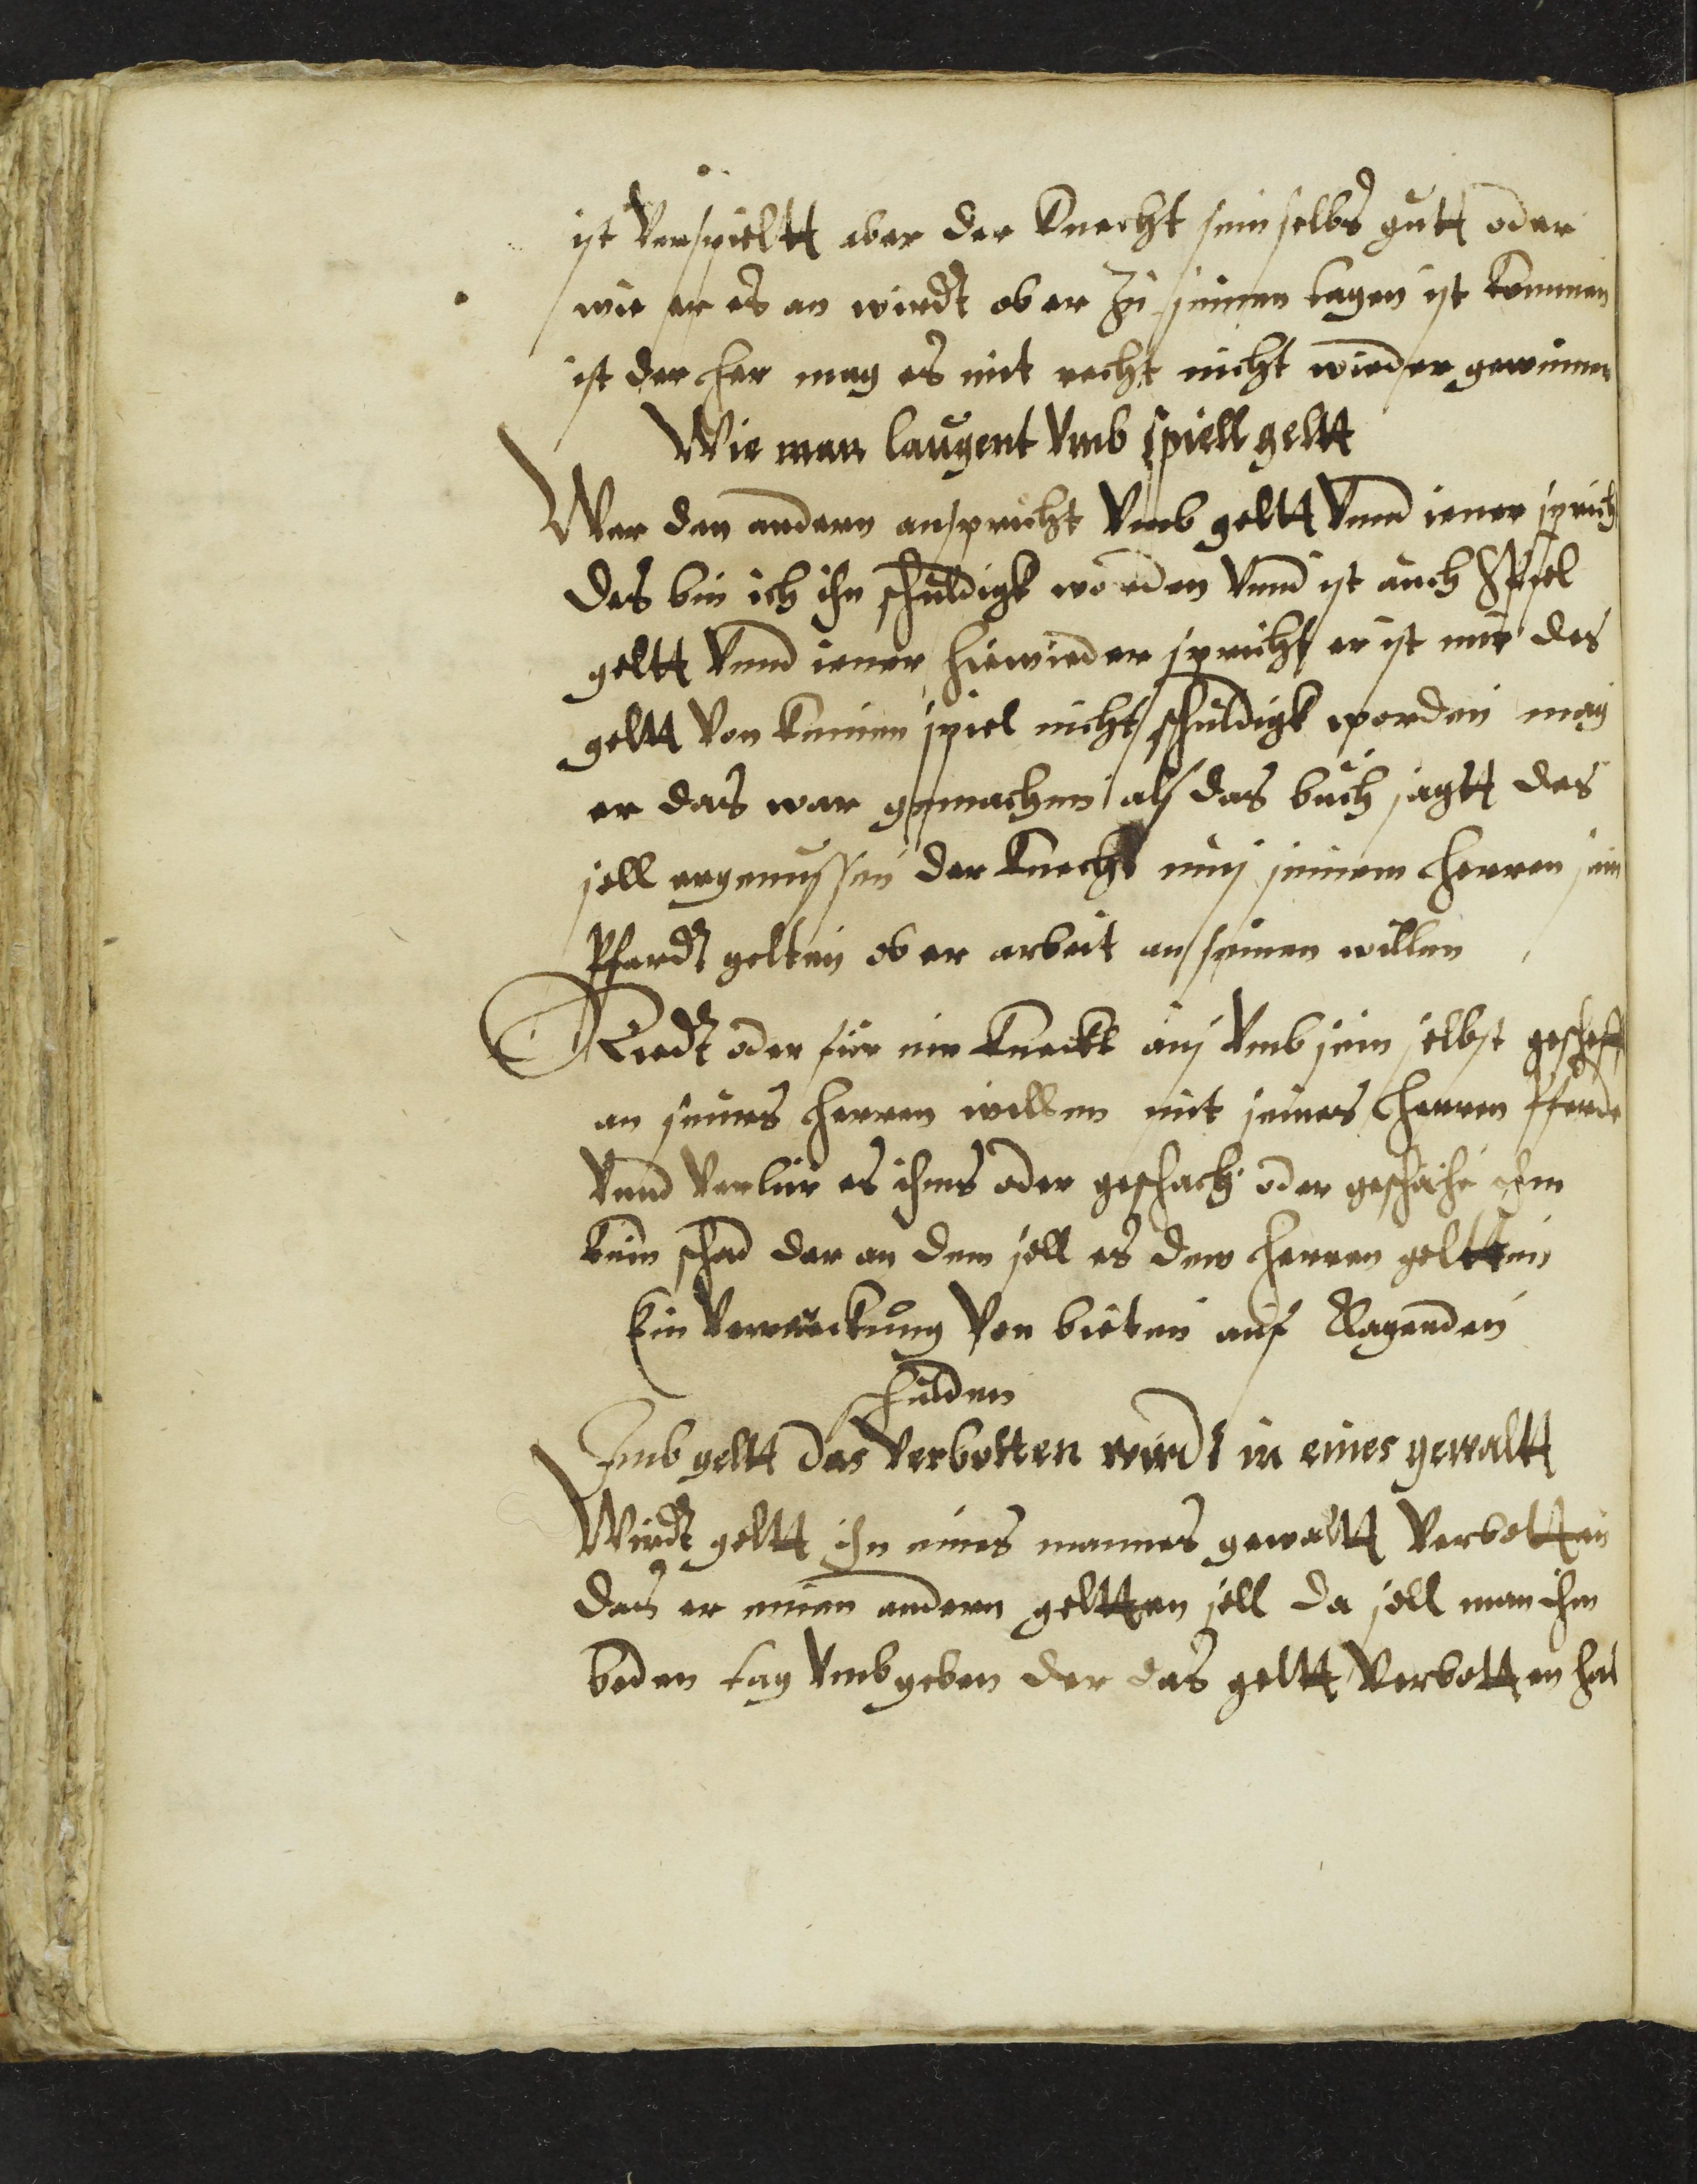 ist Verspieltt aber der Knecht sein selbs gutt oder
wie er es an wirdt ob er Zu seinen tagen ist kommen
ist der her mag es mit recht nicht wieder gewinnen
Wie man laugent Vmb spiell geltt
Wer den andern anspricht Vmb geltt Vnnd iener sprich
des bin ich ihn schuldigk worden Vnnd ist auch Spiel
geltt Vnnd iener hiewieder spricht er ist mir des
geltt Von keinen spiel nicht schuldigk worden mag
er das war gemachen als das buch sagtt des
sell er genissen der Knecht mus seinem herren sein
Pferdt gelten ob er arbeit an seinen willen
Riedt oder fur ein Knecht aus Vmb sein selbst gescheft
an seines herren willen mit seines herren Pferde
Vnnd Verlur es ihms oder geschach oder geschehe ihm
kein schad dar an dem sell es dem herren geltten
Ein Verruckung Von bieten auf Klagenden
schulden
Vmb geltt das Verbotten wirdt in eines gewaltt
Wirdt geltt ihn eines mannes gewaltt Verbotten
das er einen andern geltten sell da sell man ihm
beden tag Vmb geben der das geltt Verbotten hat